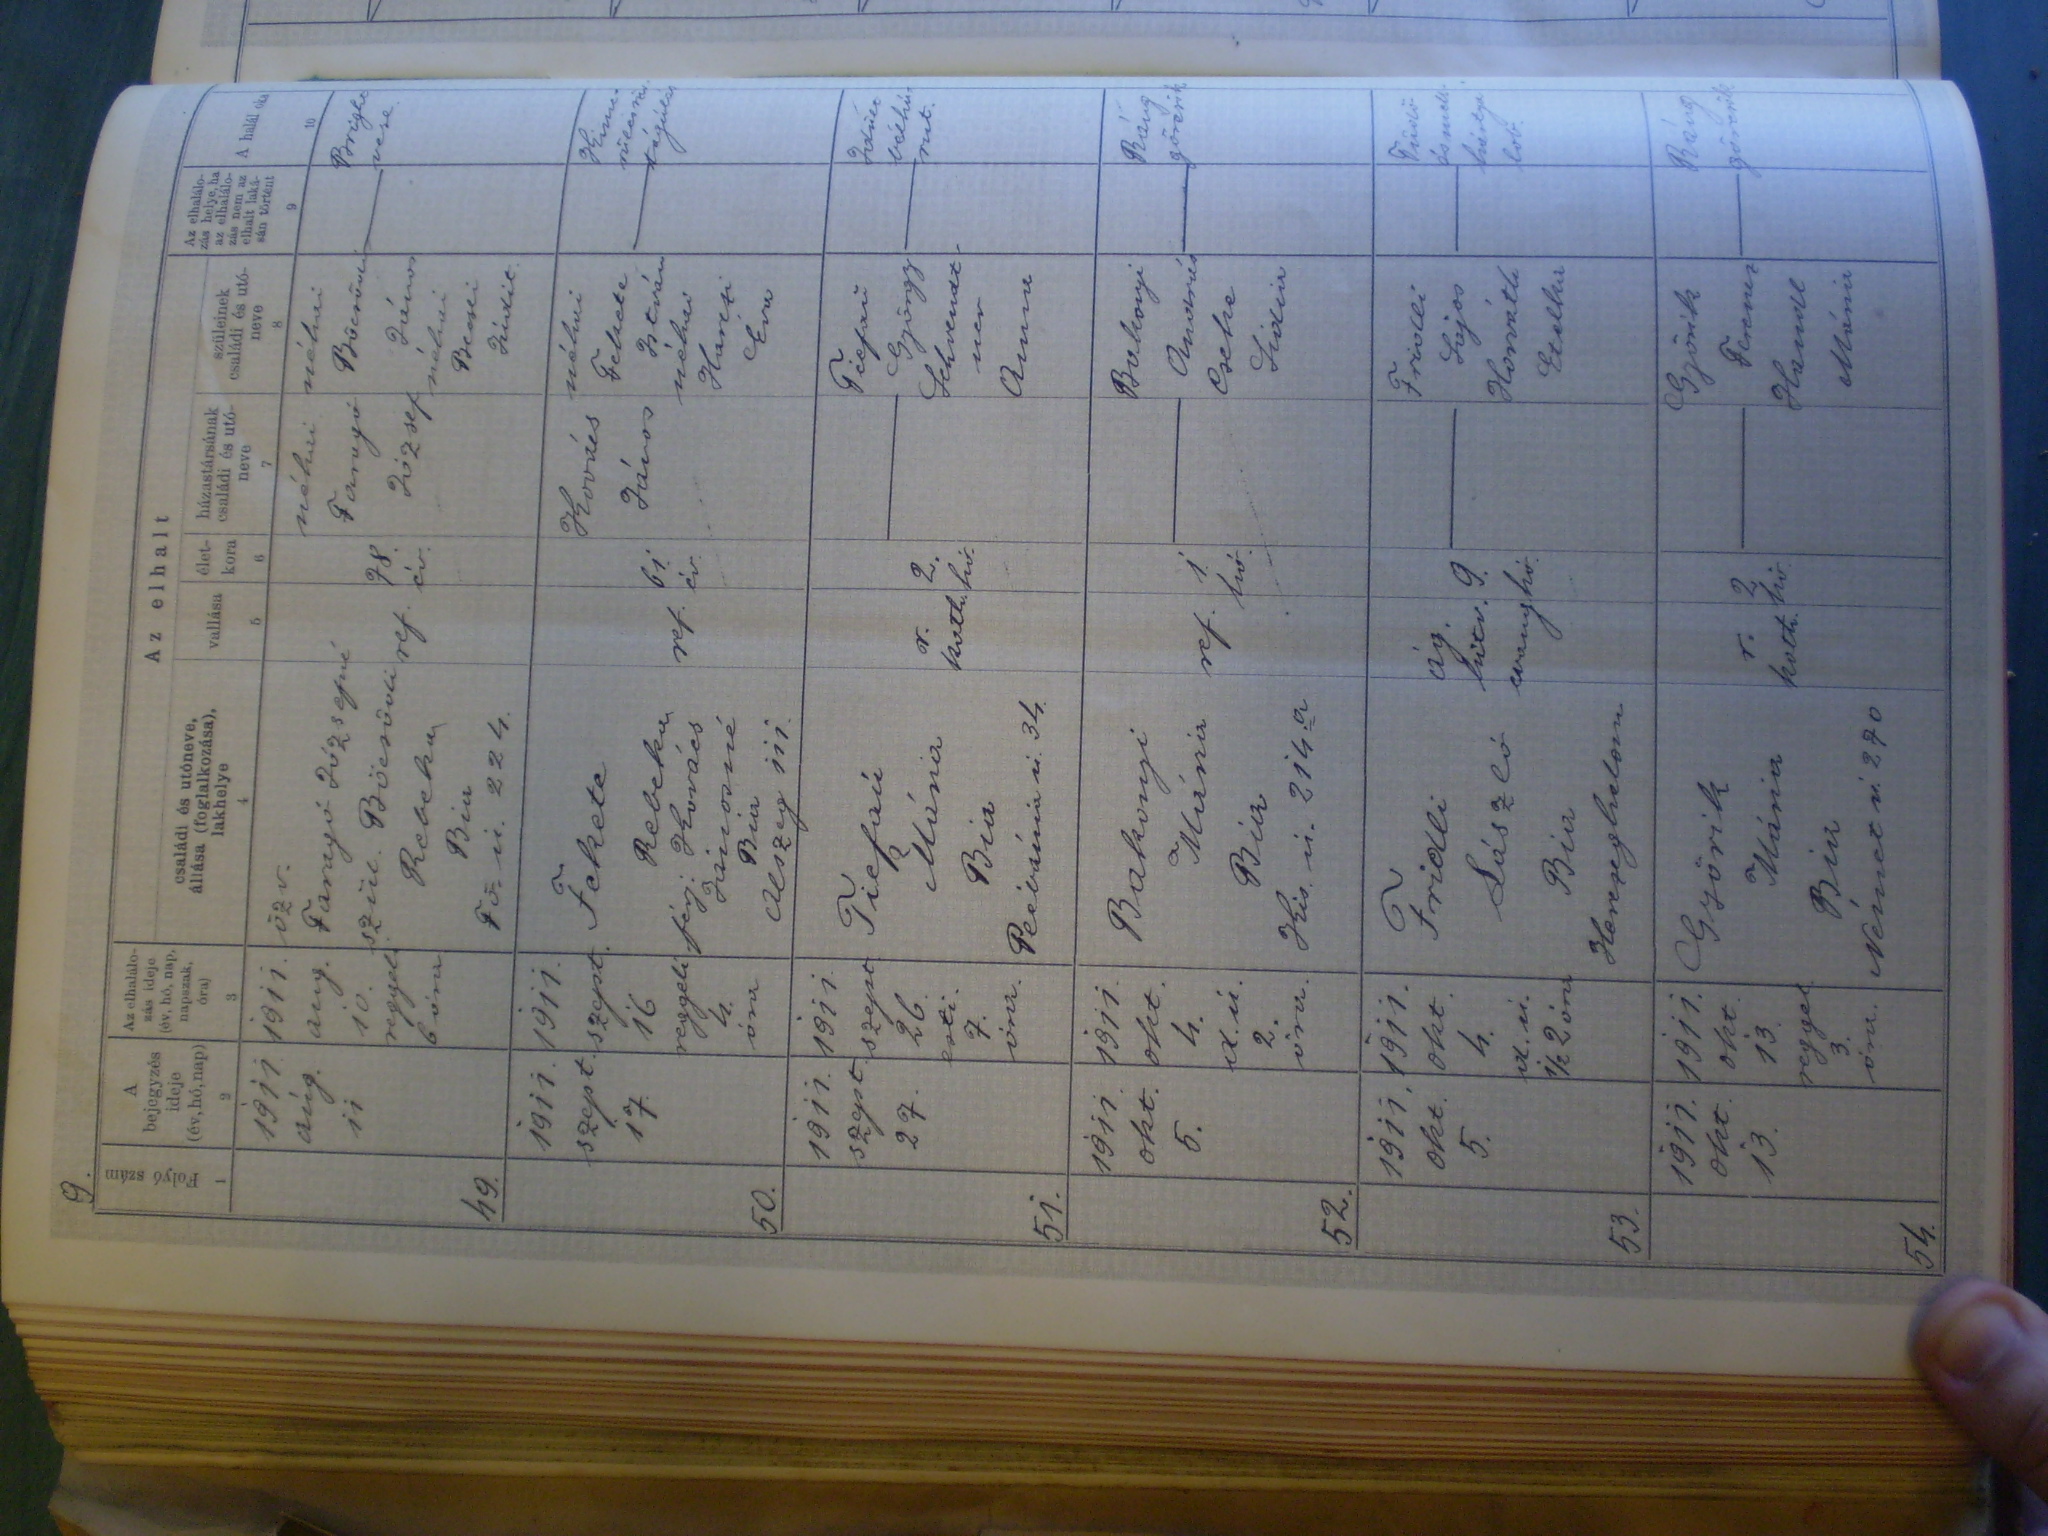 9.
Az elhalt
Folyó szám
A bejegyzés ideje (év, hó, nap)
Az elhalálo-
zás ideje
(év, hó, nap,
napszak,
óra)
családi és utóneve,
állása (foglalkozása),
lakhelye
vallása
élet-
kora
házastársának
családi és utó-
neve
szüleinek
családi és utó-
neve
Az elhalálo-
zás helye, ha
az elhálálo-
zás nem az
elhalt laká-
sán történt
A halál oka
1
2
3
4
5
6
7
8
9
10
49.
1911.
aug.
11
1911.
aug.
10.
reggeli
6 óra
özv.
Józsefné
szül.
Rebeka
Bia
Fő u. 224.
ref.
78.
év.
néhai
József
néhai
János
néhai
Becsei
Judit.
50.
1911.
szept.
17.
1911.
szept.
16
reggeli
4.
óra
Fekete
Rebeka
férj. Kovács
Jánosné
Bia
Alszeg 111.
ref.
61.
év.
Kovács
János
néhai
Fekete
István
néhai
Éva
51.
1911.
szept.
27.
1911.
szept.
26.
esti.
7.
óra.
Mária
Bia
u. 34.
r.
kath.
2.
hó.
György
Anna
52.
1911.
okt.
5.
1911.
okt.
4.
d. u.
2.
óra.
Bakonyi
Mária
Bia
Kis u. 214.a
ref.
1.
hó.
Bakonyi
András
Cseke
Lidia
Ráng
görcsök
53.
1911.
okt.
5.
1911.
okt.
4.
d. u.
1/2 2 óra
Fridli
László
Bia
Herceghalom
ág.
hitv.
evang
9.
hó.
Fridli
Lajos
Horváth
Etelka
54.
1911.
okt.
13.
1911.
okt.
13.
reggel
3.
óra.
Győrik
Mária
Bia
Német u. 270
r.
kath.
2
hó.
Győrik
Ferenc
Handl
Mária
Ráng
görcsök